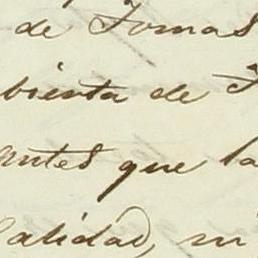 de Tomas
bienta de
antes que la
Calidad, ni